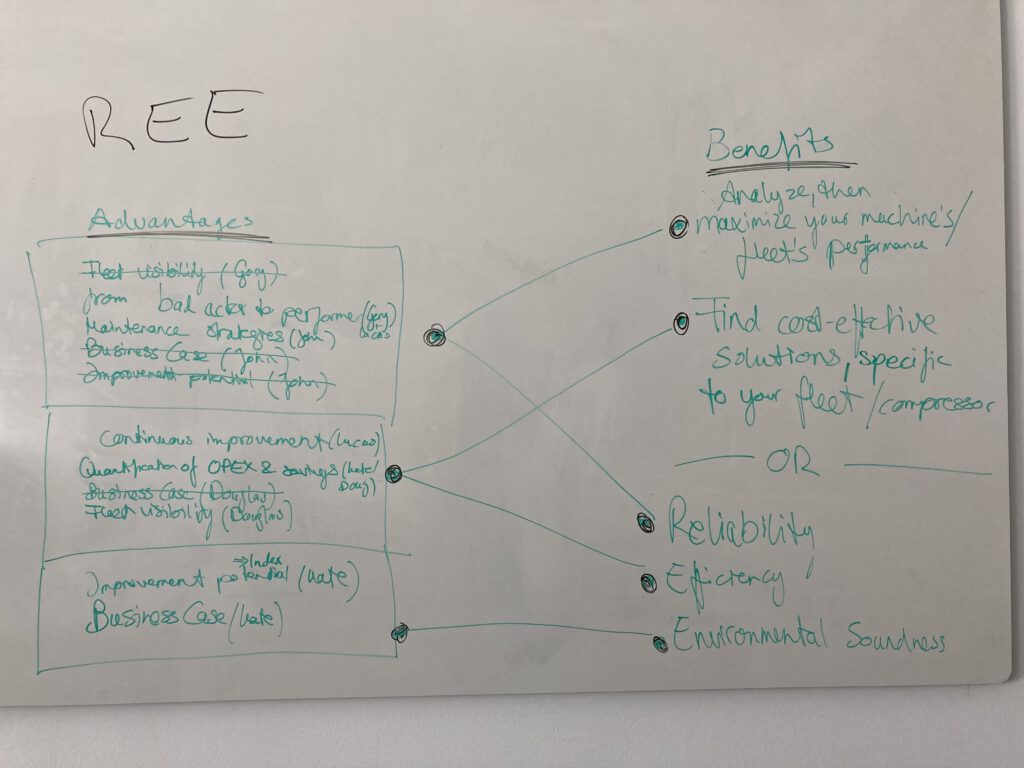 REE
Advantages
Fleet visibility (Gery)
from bad actor to performer (Gery)
Lucas
Maintenance strategies (John)
Business Case (John)
Improvement potential (John)
Continuous improvement (Lucas)
Quantification of OPEX & savings (Kate/
Doug)
Business Case (Douglas)
Fleet visibility (Douglas)
⇒Index
Improvement potential (Kate)
Business Case (Kate)
Benefits
Analyze, then
maximize your machine's/
fleet's performance
Find cost-effective
solutions, specific
to your fleet/compressor
OR
Reliability
Efficiency
Environmental Soundness